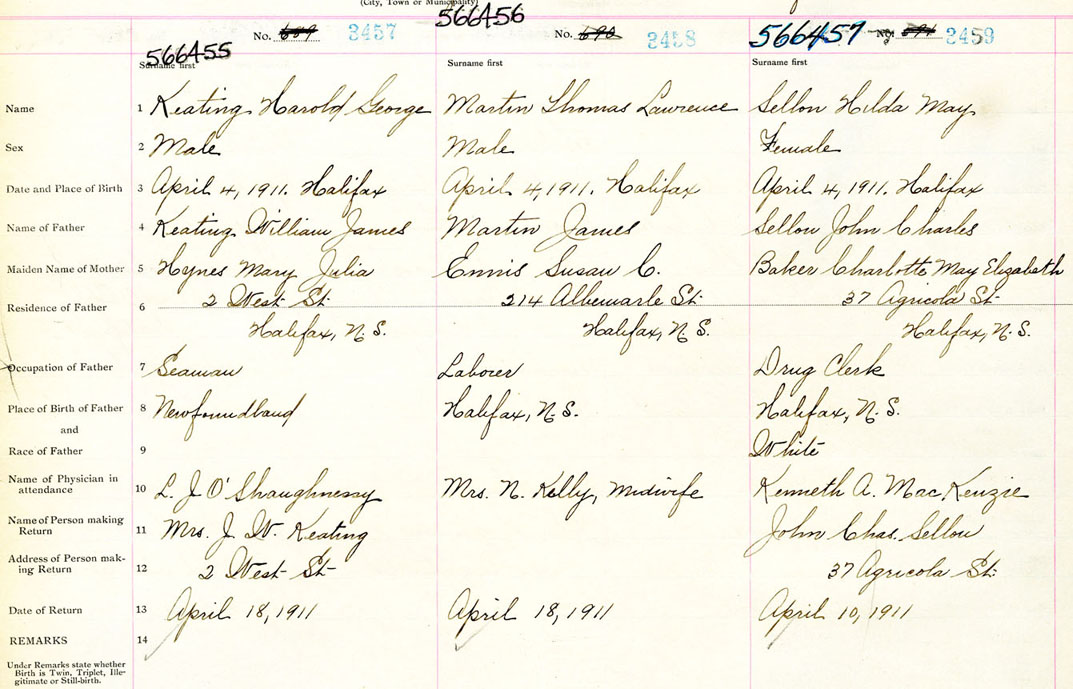 (City, Town or Municipality)
566455 No. 689 3457
566456 No. 690 3458
566457 No. 691 3459
Surname first Surname first Surname first
Name 1 Keating Harold George Martin Thomas Lawrence Sellon Hilda May
Sex 2 Male Male Female
Date and Place of Birth 3 April 4, 1911. Halifax April 4, 1911. Halifax April 4, 1911. Halifax
Name of Father 4 Keating William James Martin James Sellon John Charles
Maiden Name of Mother 5 Hynes Mary Julia Ennis Susan C. Baker Charlotte May Elizabeth
Residence of Father 6 2 West St. 214 Albemarle St. 37 Agricola St.
Halifax, N.S. Halifax, N.S. Halifax, N.S.
Occupation of Father 7 Seaman Laborer Drug Clerk
Place of Birth of Father 8 Newfoundland Halifax, N.S. Halifax, N.S.
and
Race of Father 9 White
Name of Physician in
attendance 10 L. J. O'Shaughnessy Mrs. N. Kelly, Midwife Kenneth A. MacKenzie
Name of Person making
Return 11 Mrs. J. W. Keating John Chas. Sellon
Address of Person mak-
ing Return 12 2 West St. 37 Agricola St.
Date of Return 13 April 18, 1911 April 18, 1911 April 10, 1911
REMARKS 14
Under Remarks state whether
Birth is Twin, Triplet, Ille-
gitimate or Still-birth.